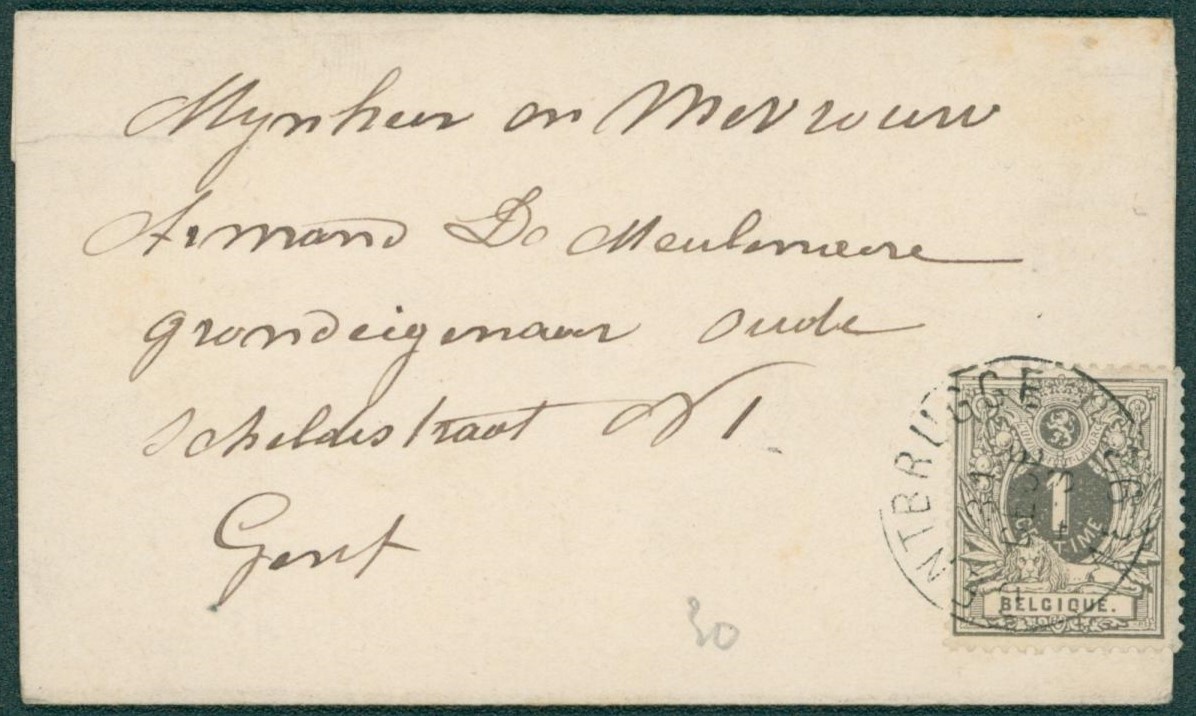 Mynheer en Mevrouw
Armand De Meulemeere
grondeigenaar oude
scheldestraat N 1
Gent
30
GENTBRUGGE
31
1
CENTIME
BELGIQUE.